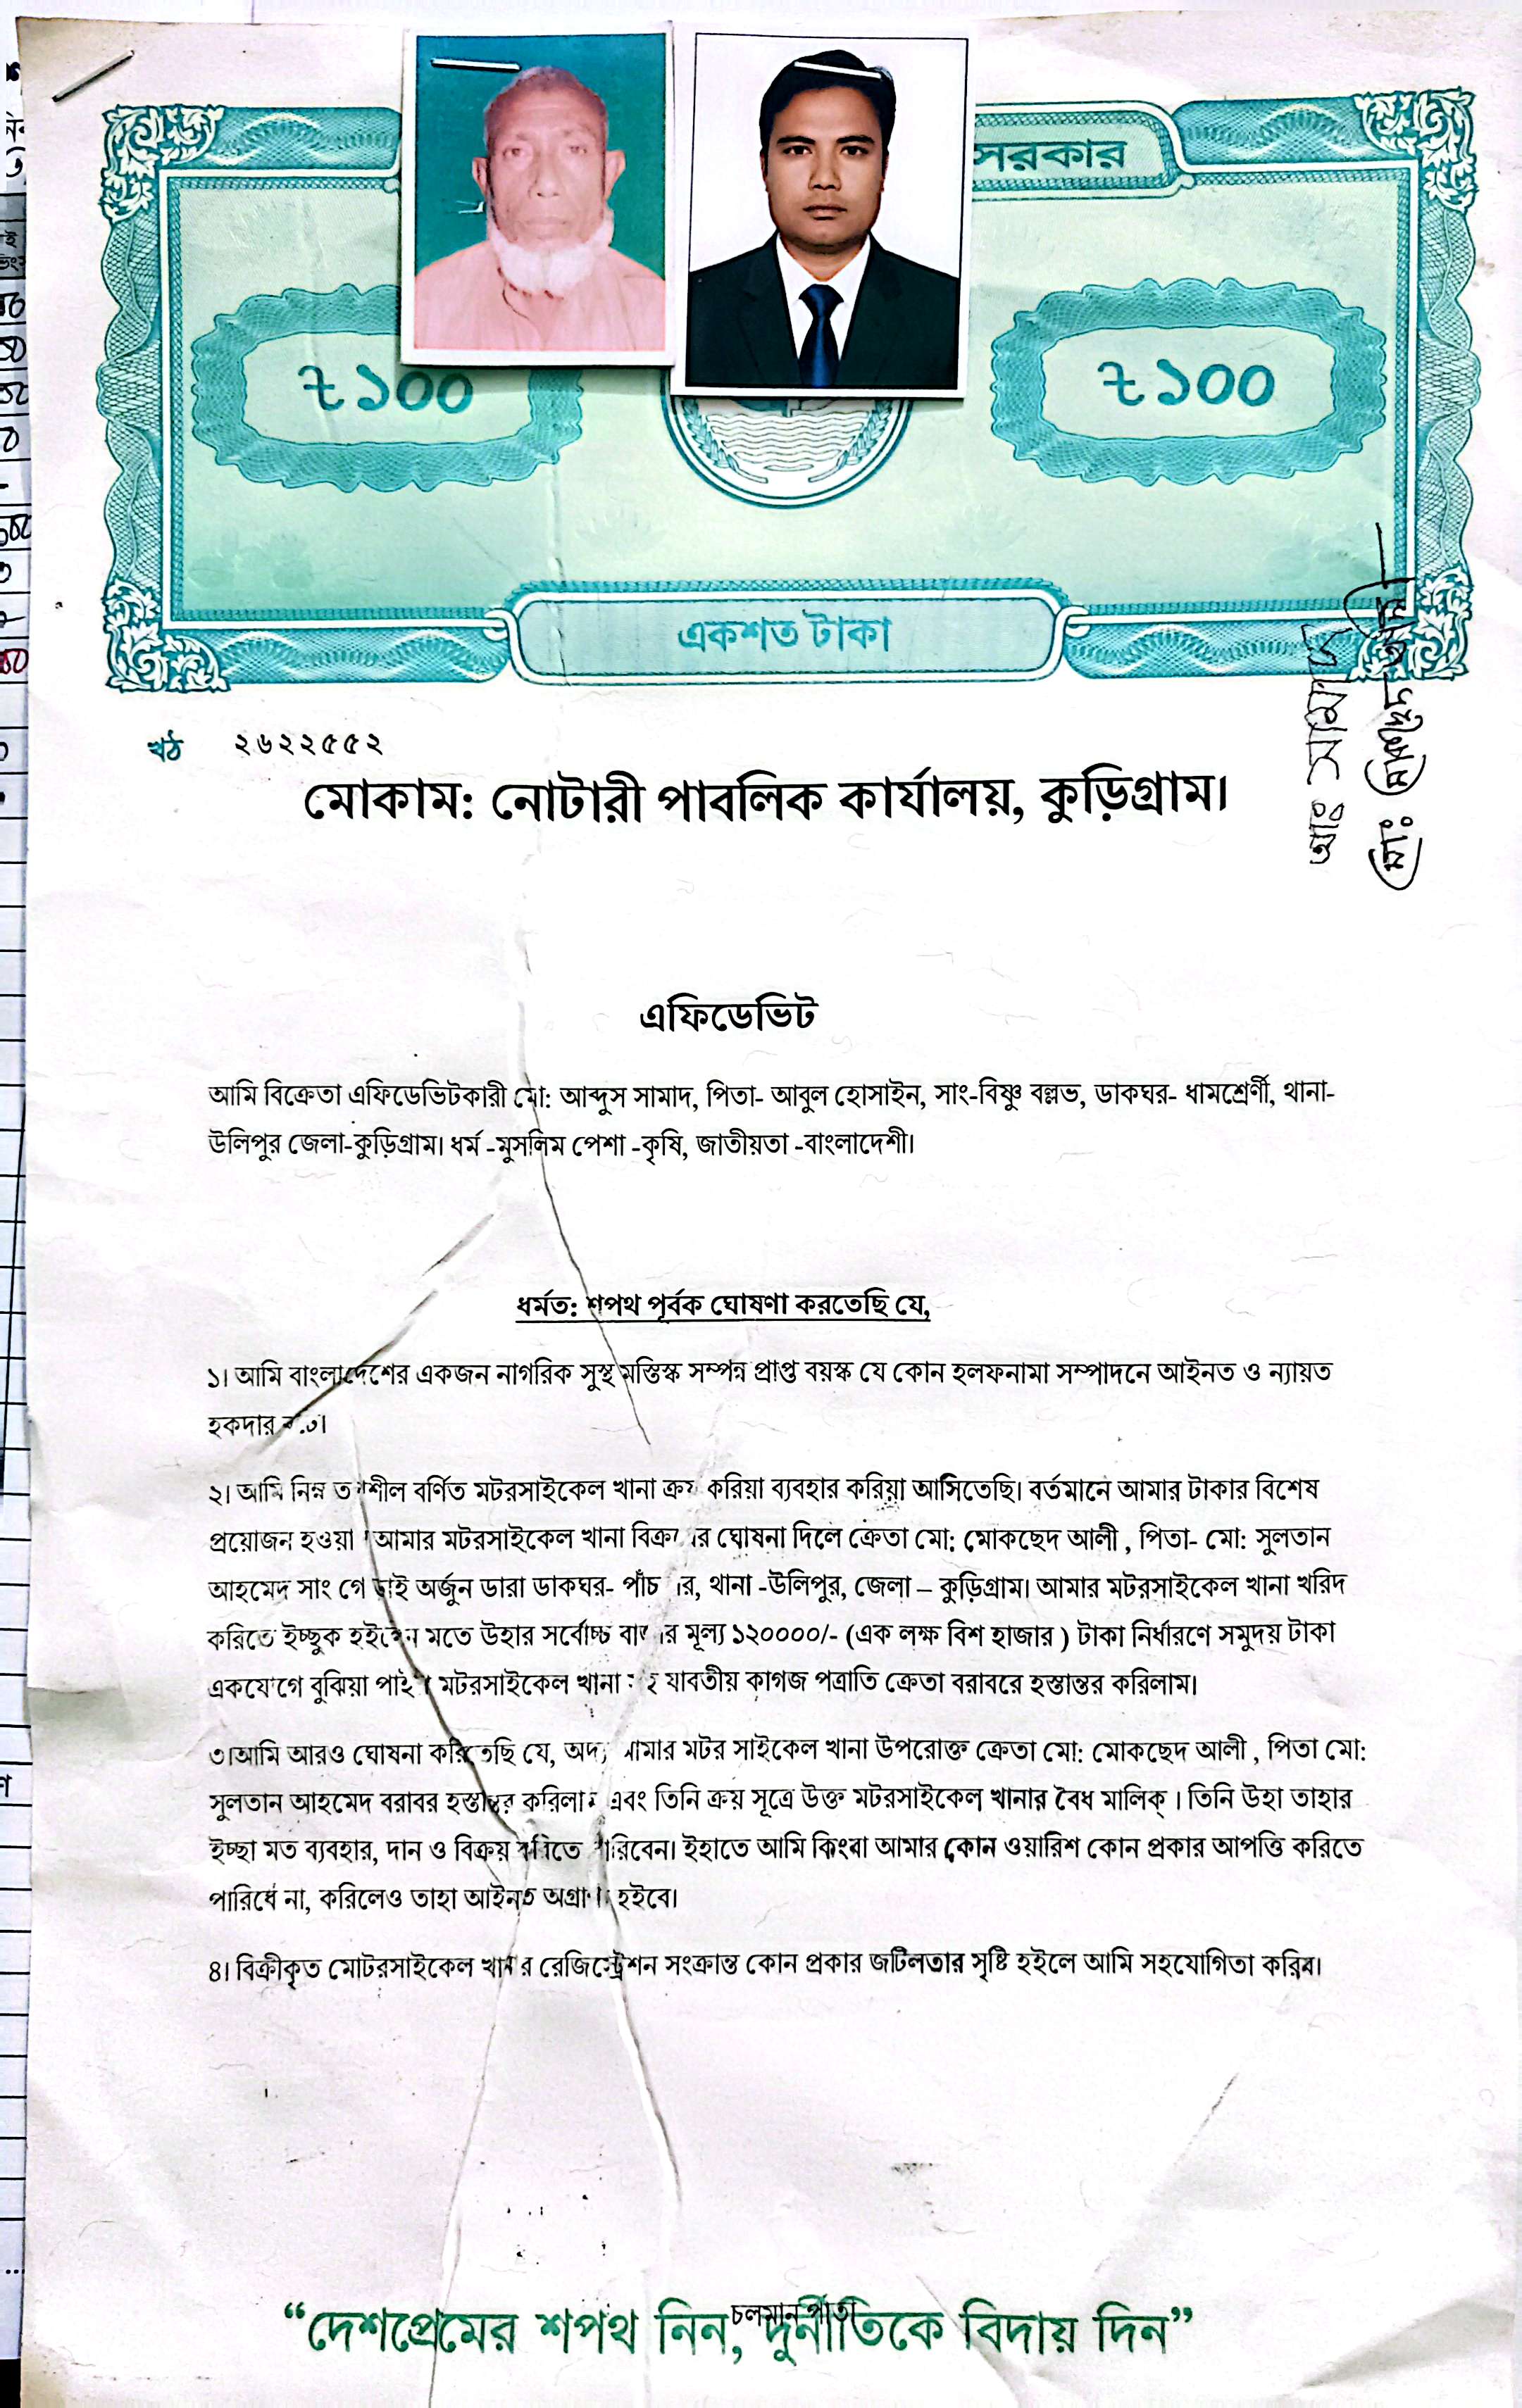 সরকার
৳১০০
৳১০০
একশত টাকা
খঠ ২৬২২৫৫২
মোকাম: নোটারী পাবলিক কার্যালয়, কুড়িগ্রাম।
আঃ সামাদ
মোঃ মোকছেদ আলী
এফিডেভিট
আমি বিক্রেতা এফিডেভিটকারী মো: আব্দুস সামাদ, পিতা- আবুল হোসাইন, সাং-বিষ্ণু বল্লভ, ডাকঘর- ধামশ্রের্ণী, থানা-
উলিপুর জেলা-কুড়িগ্রাম। ধর্ম -মুসলিম পেশা -কৃষি, জাতীয়তা -বাংলাদেশী।
ধর্মত: শপথ পূর্বক ঘোষণা করতেছি যে,
১। আমি বাংলাদেশের একজন নাগরিক সুস্থ মস্তিস্ক সম্পন্ন প্রাপ্ত বয়স্ক যে কোন হলফনামা সম্পাদনে আইনত ও ন্যায়ত
হকদার
২। আমি নিম্ন বর্ণিত মটরসাইকেল খানা ক্রয় করিয়া ব্যবহার করিয়া আসিতেছি। বর্তমানে আমার টাকার বিশেষ
প্রয়োজন হওয়া আমার মটরসাইকেল খানা ঘোষনা দিলে ক্রেতা মো: মোকছেদ আলী , পিতা- মো: সুলতান
আহমেদ সাং অর্জুন ডারা ডাকঘর- থানা -উলিপুর, জেলা – কুড়িগ্রাম। আমার মটরসাইকেল খানা খরিদ
করিতে ইচ্ছুক হইলেন মতে উহার সর্বোচ্চ মূল্য ১২০০০০/- (এক লক্ষ বিশ হাজার ) টাকা নির্ধারণে সমুদয় টাকা
একযোগে বুঝিয়া মটরসাইকেল খানা যাবতীয় কাগজ পত্রাতি ক্রেতা বরাবরে হস্তান্তর করিলাম।
৩।আমি আরও ঘোষনা করিতেছি যে, অদ্য আমার মটর সাইকেল খানা উপরোক্ত ক্রেতা মো: মোকছেদ আলী , পিতা মো:
সুলতান আহমেদ বরাবর হস্তান্তর করিলাম এবং তিনি ক্রয় সূত্রে উক্ত মটরসাইকেল খানার বৈধ মালিক্ । তিনি উহা তাহার
ইচ্ছা মত ব্যবহার, দান ও বিক্রয় করিতে পারিবেন। ইহাতে আমি কিংবা আমার কোন ওয়ারিশ কোন প্রকার আপত্তি করিতে
না, করিলেও তাহা আইনত হইবে।
৪। বিক্রীকৃত মোটরসাইকেল খানার রেজিস্ট্রেশন সংক্রান্ত কোন প্রকার জটিলতার সৃষ্টি হইলে আমি সহযোগিতা করিব।
চলমান পাতা
“দেশপ্রেমের শপথ নিন, দুর্নীতিকে বিদায় দিন”